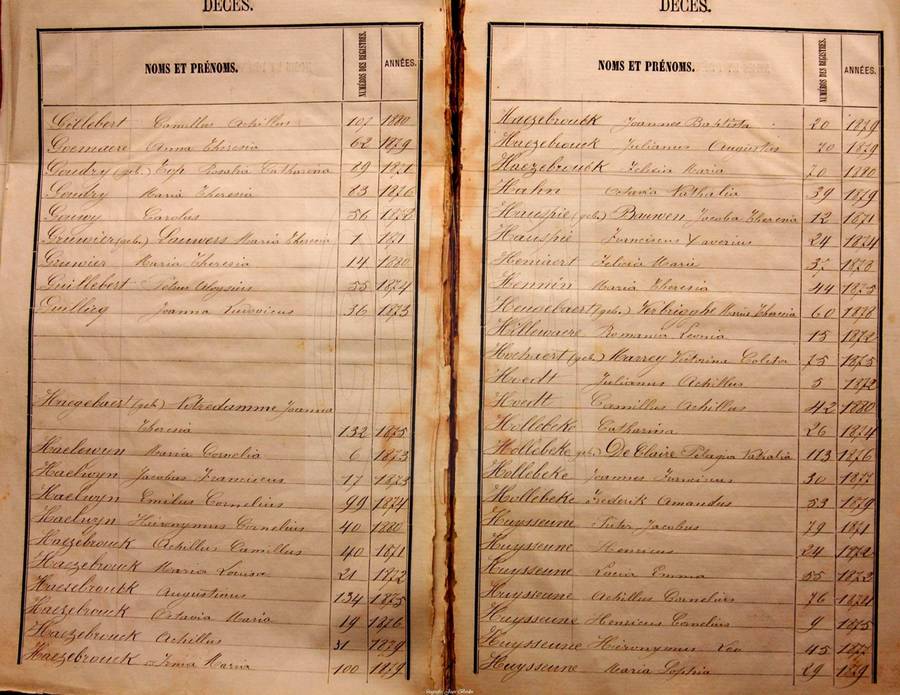 DÉCÈS.
NOMS ET PRÉNOMS. NUMÉROS DES REGISTRES. ANNÉES.
Camillus Achillus 107 1880
Goemaere Anna Theresia 62 1879
Goudry (geb.) Rosalia Catharena 1871
Goudry Maria Theresia 1876
Carolus 56
Gruwier (geb.) Lauwers Maria Theresia 1 1871
Gruwier Maria Theresia 14 1880
Guillebert Petrus Aloysius 55 1874
Joanna Ludovicus 36 1873
Haegebaert (geb.) Notredamme Joanna
Theresia 132 1875
Haelewyn Maria Cornelia 6 1873
Haelwyn Jacobus Franciscus 17 1873
Haelwyn Emilus Cornelius 99 1874
Haelwyn Hieronymus Cornelius 40 1880
Haezebrouck Achillus Camillus 40 1871
Haezebrouck Maria Louisa 21 1872
Haezebrouck Augustinus 134 1875
Haezebrouck Octavia Maria 19 1876
Haezebrouck Achillus 31 1879
Haezebrouck Irma Maria 100 1879
DÉCÈS.
NOMS ET PRÉNOMS. NUMÉROS DES REGISTRES. ANNÉES.
Haezebrouck Joannes Baptista 20 1879
Haezebrouck Julianus Augustus 70 1879
Haezebrouck Felicia Maria 70 1880
Hahn Octavia Nathalia 39 1879
Hauspie (geb.) Bauwen Jacoba Theresia 12 1871
Hauspie Franciscus Xaverius 24 1874
Hemiaert Felicia Maria 37 1878
Hennin Maria Theresia 44 1875
Heugebaert (geb.) Verbrigghe Maria Theresia 60 1878
Hillewaere Romania Leonia 15 1872
Hochaert (geb.) Marrey Victorina Coleta 75 1875
Hoedt Julianus Achillus 5 1872
Hoedt Camillus Achillus 42 1880
Hollebeke Catharina 26 1874
Hollebeke (geb.) De Claire Pelagia Nathalia 113 1876
Hollebeke Joannes Franciscus 30 1877
Hollebeke Frederik Amandus 53 1879
Huysseune Jacobus 79 1871
Huysseune Henricus 24 1872
Huysseune Lucia Emma 55 1872
Huysseune Achillus Cornelius 76 1874
Huysseune Henricus Cornelius 9 1875
Huysseune Hieronymus Leo 45 1877
Huysseune Maria Sophia 29 1879